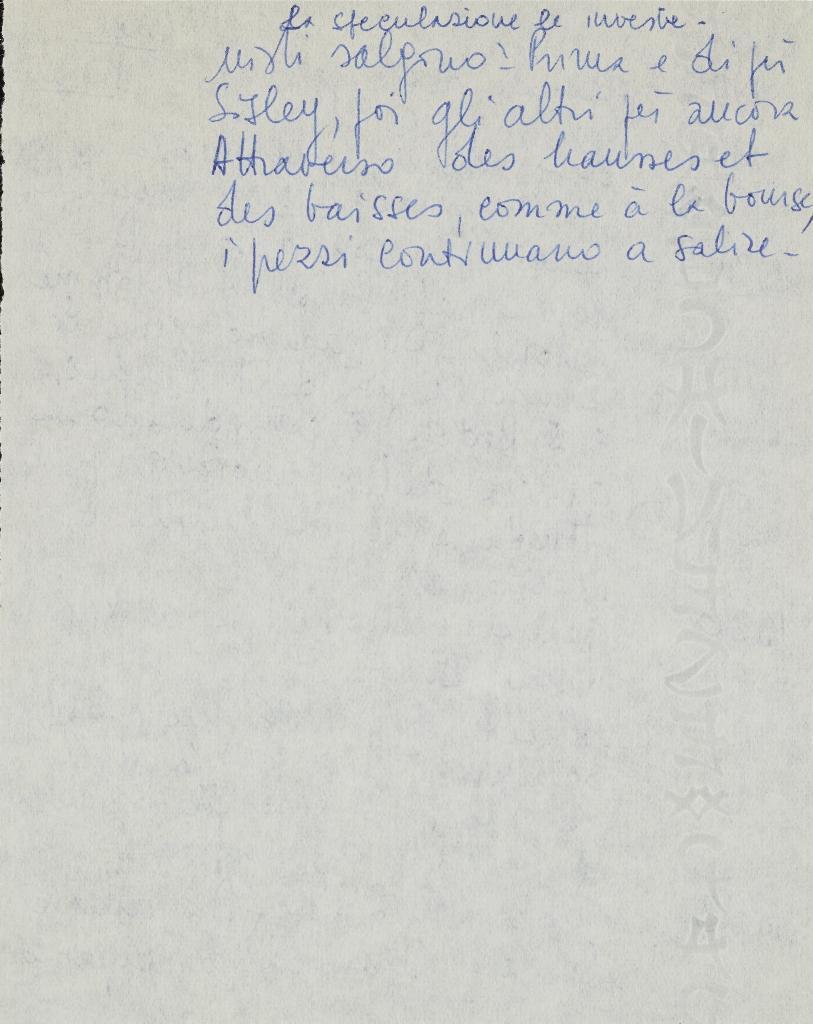 La speculazione le investe -
nisti salgono - Prima e di più
Sisley, poi gli altri più ancora
Attraverso des hausses et
des baisses, comme à la bourse,
i pezzi continuano a salire -